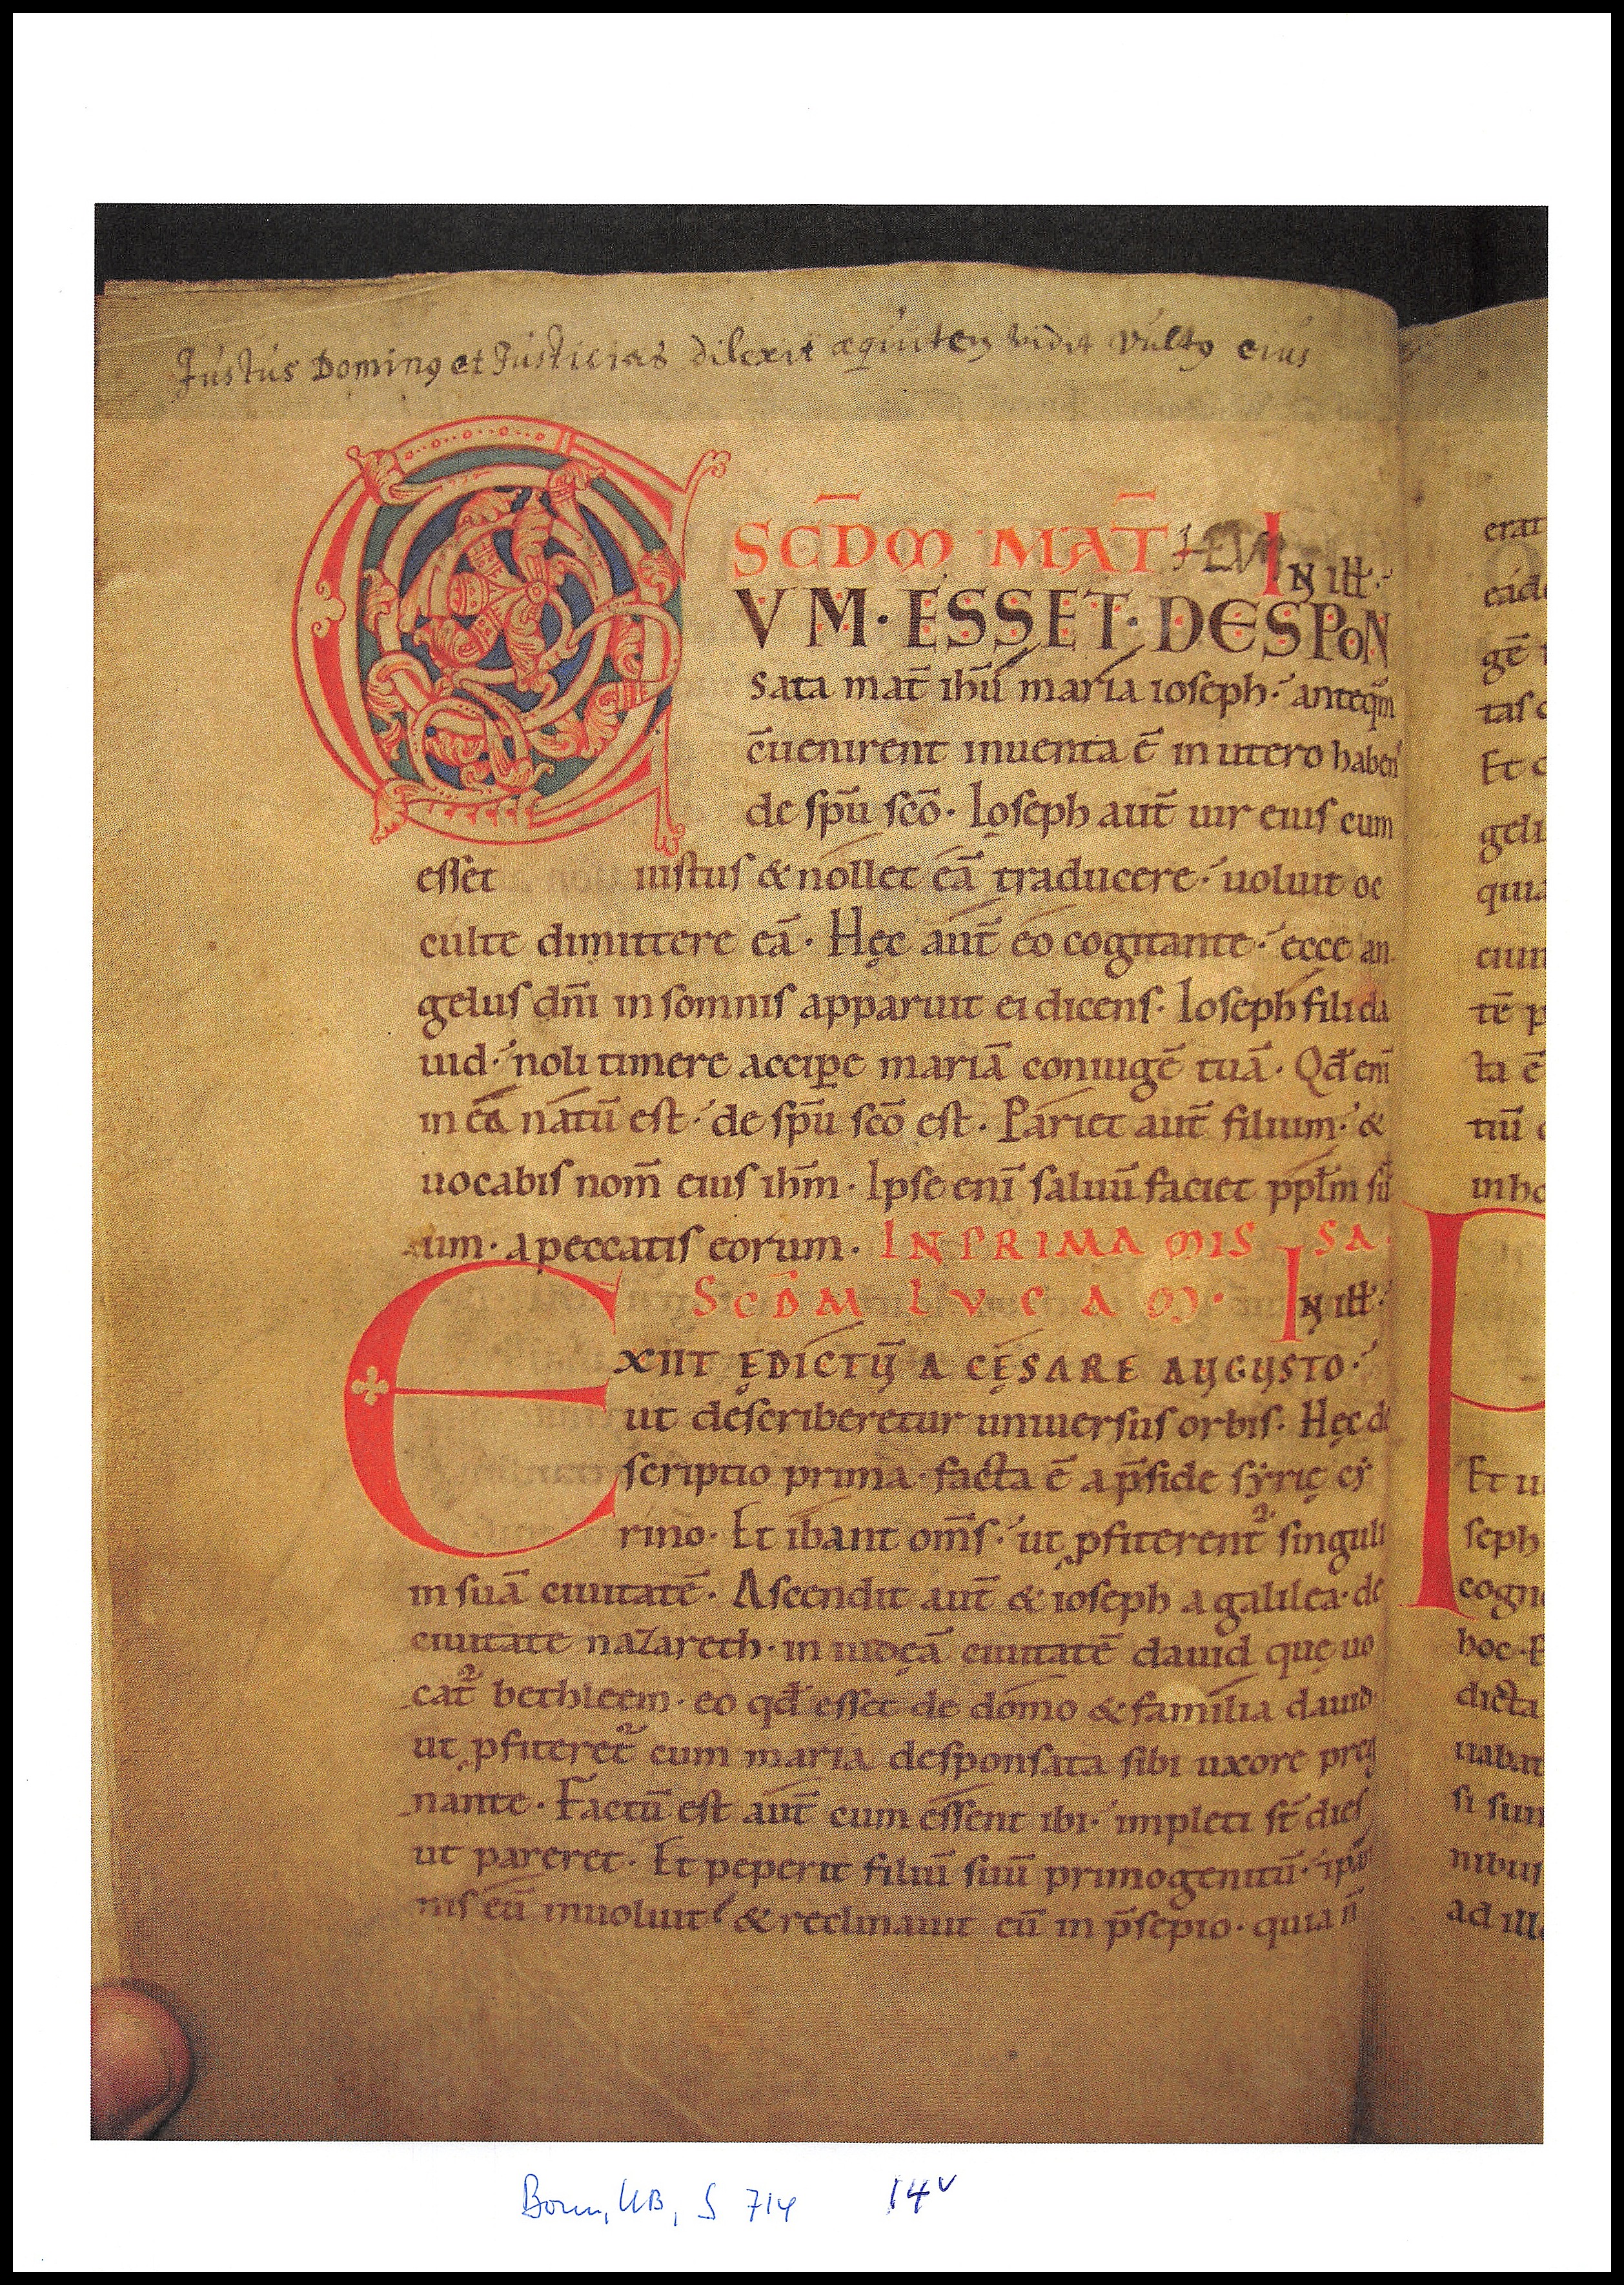 Justus Dominꝯ et Justicias dilexit æquitem vidit vultꝯ eius
SCD̄M MAT̄HEVM IN ill̄:
CVM · ESSET · DESPON
sata mat̄ ihū maria ioseph · anteq̄m
c̄uenirent inuenta ē in utero habens
de spū scō · Ioseph aut̄ uir eius cum
esset iustus & nollet eā traducere · uoluit oc
culte dimittere eā · Hęc aut̄ eo cogitante · ecce an
gelus dn̄i in somnis apparuit ei dicens · Ioseph fili da
uid · noli timere accipe mariā coniugē tuā · Qđ eni
in ea natū est · de spū scō est · Pariet aut̄ filium · &
uocabis nom̄ eius ihm̄ · Ipse enī saluū faciet ppl̄m su
um · a peccatis eorum · IN PRIMA MISSA ·
SCD̄M LVCAM · IN ill̄:
EXIIT ĘDICTŪ A CĘSARE AUGUSTO ·
ut describeretur uniuersus orbis · Hęc de
scriptio prima · facta ē a p̄side sẏrię cẏ
rino · Et ibant om̄s · ut ꝓfiterent᷑ singuli
in suā ciuitatē · Ascendit aut̄ & ioseph a galilea · de
ciuitate nazareth · in iudęā ciuitatē dauid quę uo
cat᷑ bethleem · eo qđ esset de domo & familia dauid
ut ꝓfiteret᷑ cum maria desponsata sibi uxore pręg
nante · Factū est aut̄ cum essent ibi · impleti st̄ dies
ut pareret · Et peperit filiū suū primogenitū · & pan
nis eū inuoluit · & reclinauit eū in p̄sepio · quia n̄
erat
eade
gē
tas
Et
geli
quia
eiun
tē p
ta ē
tiū
in ho
P
Et u
seph
cogn
hoc · E
dicta
uabat
si sun
nibus
ad ill
Bonn, UB, S 714 14v